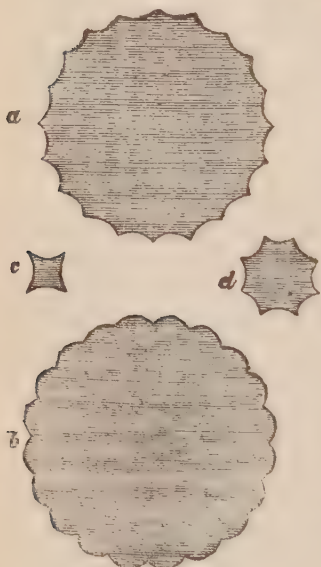 a
c
d
b